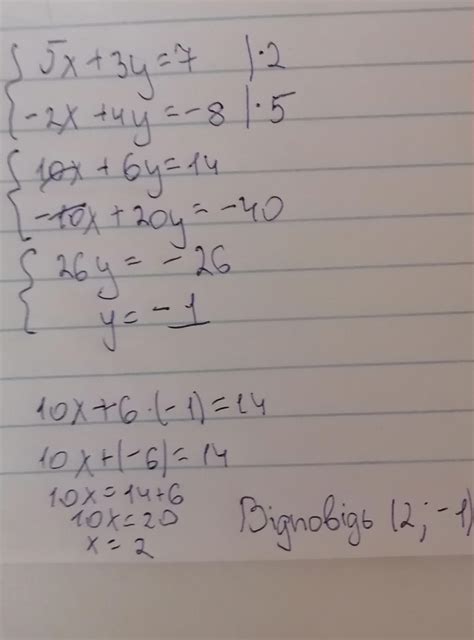 5x+3y=7 |·2
-2x+4y=-8 |·5
10x+6y=14
-10x+20y=-40
26y=-26
y=-1
10x+6·(-1)=14
10x+(-6)=14
10x=14+6
10x=20
x=2
Відповідь (2;-1)